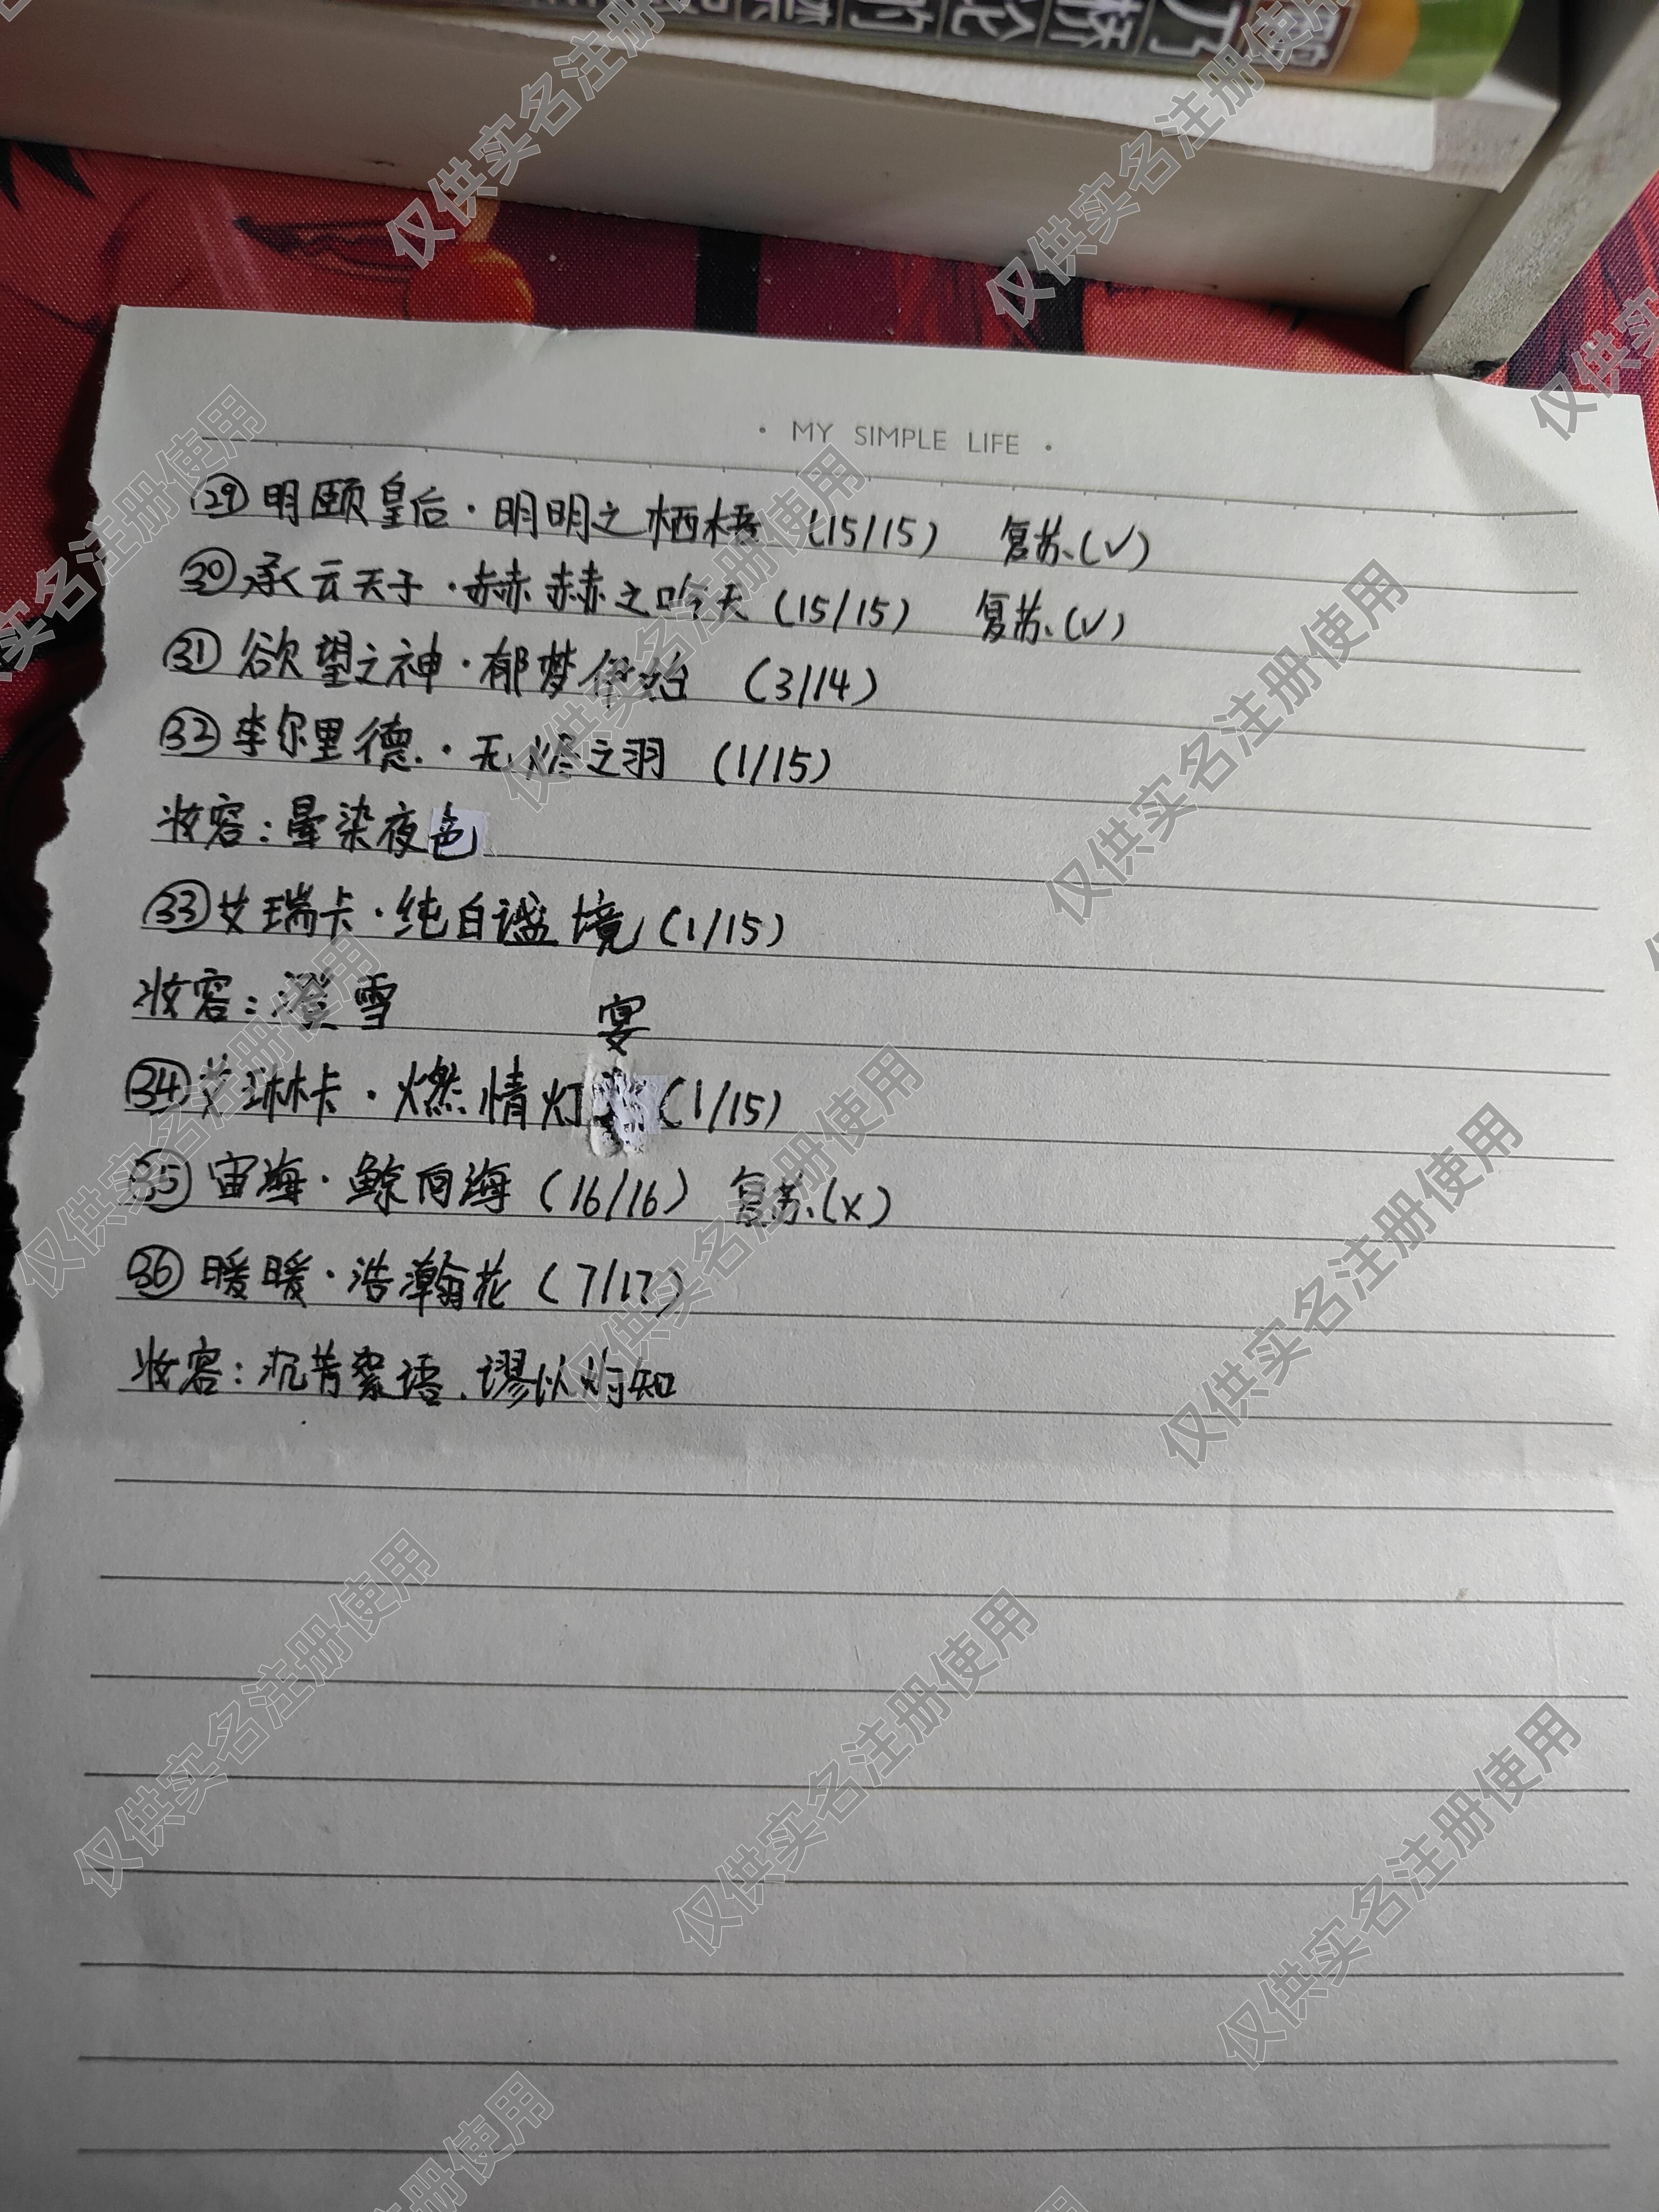 · MY SIMPLE LIFE ·
㉙明颐皇后·明明之栖梧 (15/15) 复苏(√)
㉚承云天子·赫赫之吟天 (15/15) 复苏(√)
㉛欲望之神·郁梦伊始 (3/14)
㉜李尔里德·无烬之羽 (1/15)
妆容:晕染夜色
㉝艾瑞卡·纯白谧境 (1/15)
妆容:澄雪
宴
㉞艾琳卡·燃情灯 (1/15)
㉟宙海·鲸向海 (16/16) 复苏(×)
㊱暖暖·浩瀚花 (7/17)
妆容:沉芳絮语、谬以灼知
仅供实名注册使用